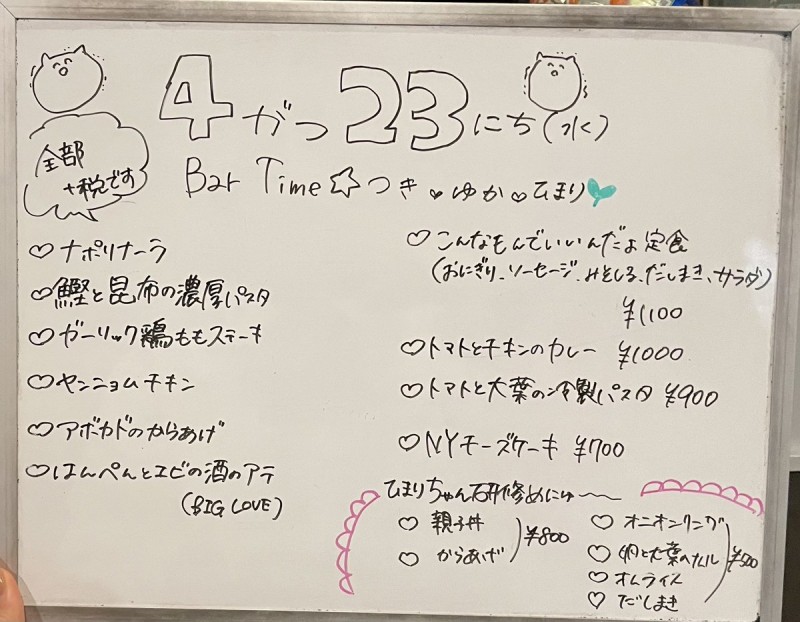 4がつ23にち(水)
全部
+税です
Bar Time☆つき♡ゆか♡ひまり
♡ナポリナーラ
♡鰹と昆布の濃厚パスタ
♡ガーリック鶏ももステーキ
♡ヤンニョムチキン
♡アボカドのからあげ
♡はんぺんとエビの酒のアテ
(BIG LOVE)
♡こんなもんでいいんだよ定食
(おにぎり、ソーセージ、みそしる、だしまき、サラダ)
¥1100
♡トマトとチキンのカレー ¥1000
♡トマトと大葉の冷製パスタ ¥900
♡NYチーズケーキ ¥700
ひまりちゃん研修めにゅ〜〜
♡親子丼
♡からあげ
¥800
♡オニオンリング
♡卵と大葉の
♡オムライス
♡だしまき
¥500